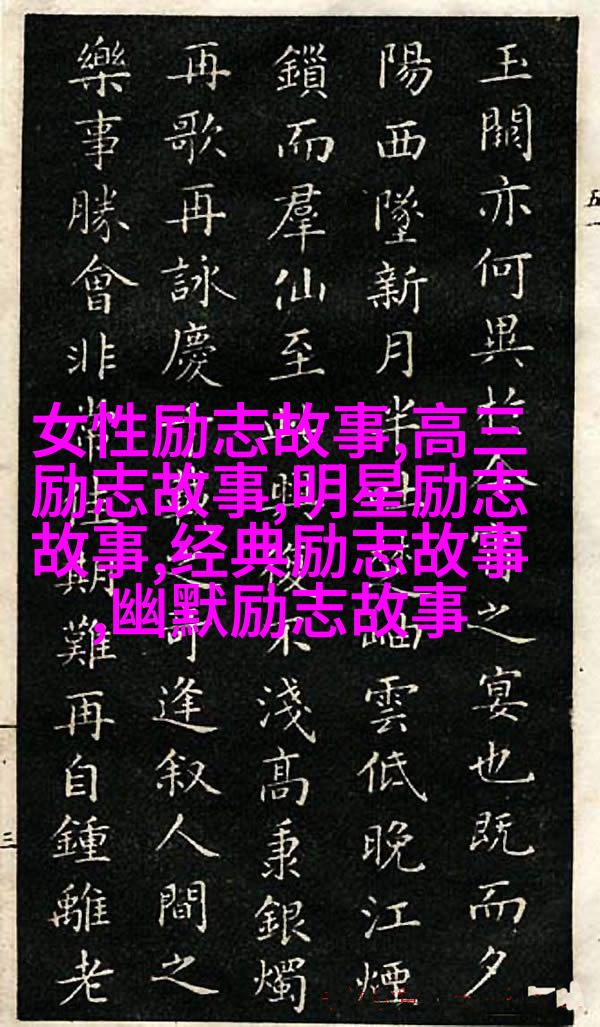 玉闕亦何異於今宵之宴也既而夕
陽西墜新月半岫雲低晚江煙
鎖而羣仙至此興復不淺高秉銀燭
再歌再詠慶之可逢叙人間之
樂事勝會非常佳期難再自鍾離老
女性励志故事,高三
励志故事,明星励志
故事,经典励志故事
,幽默励志故事
五一
三